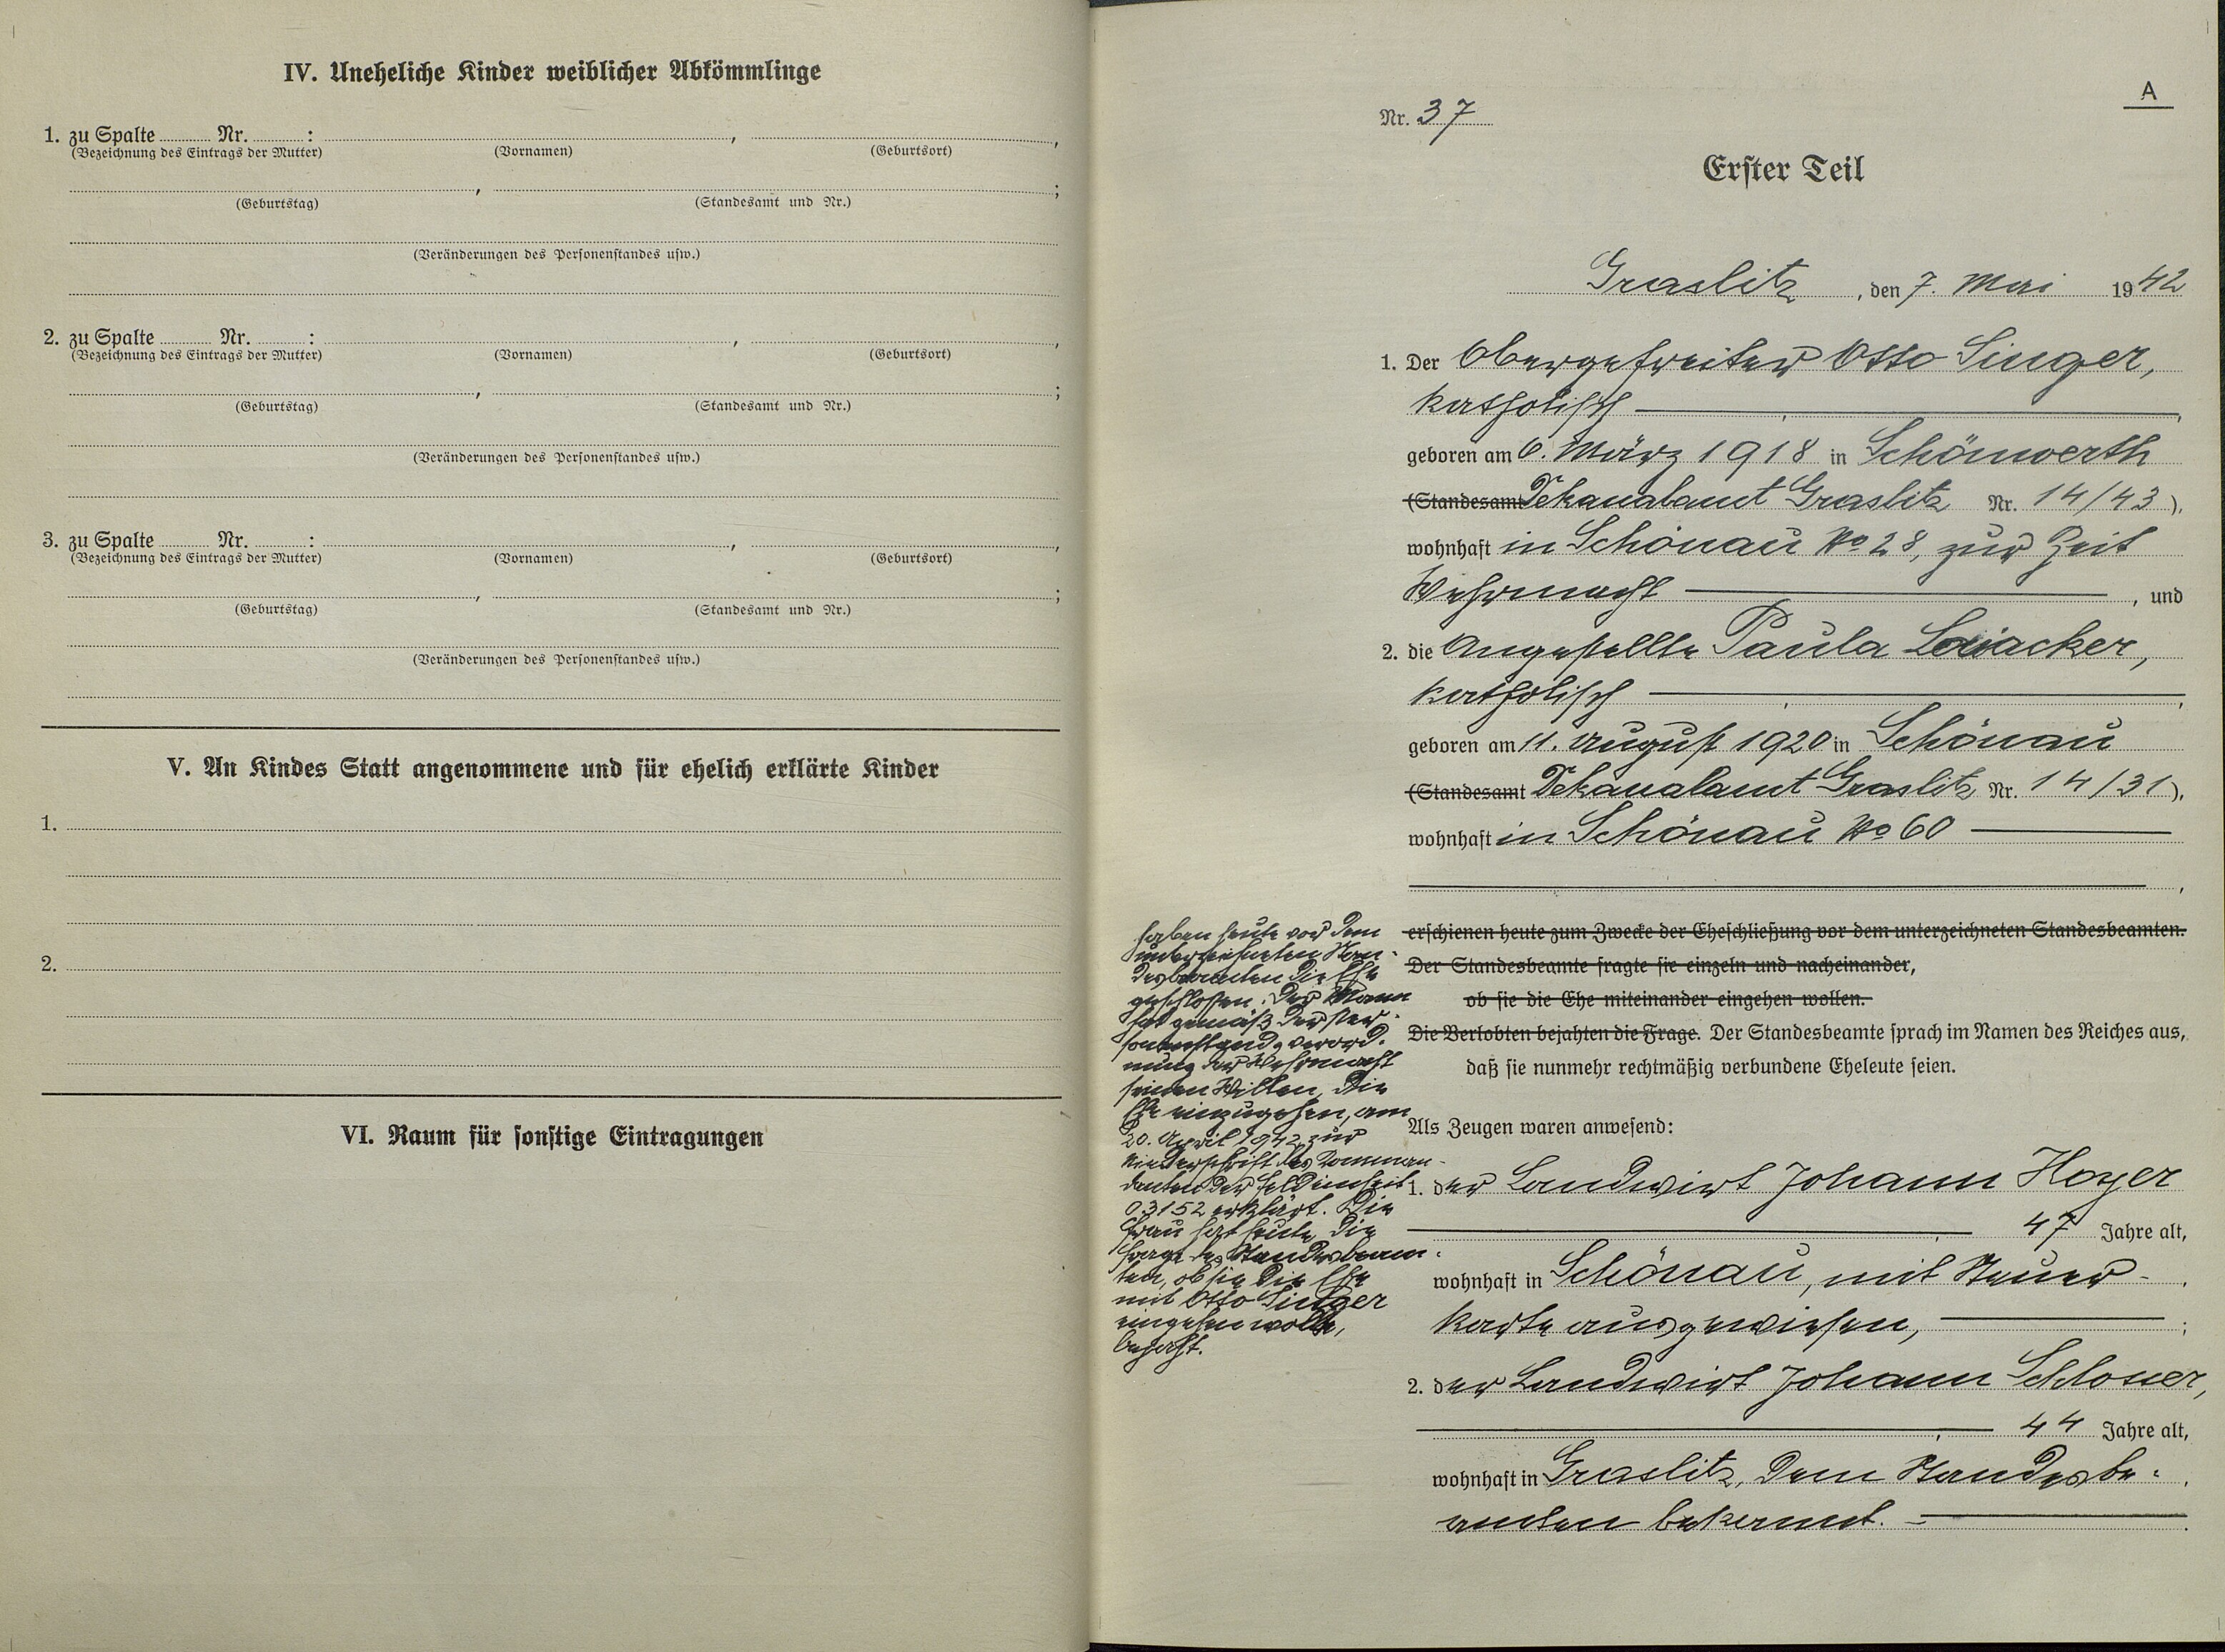 IV. Uneheliche Kinder weiblicher Abkömmlinge
1. zu Spalte ........ Nr. ........ : ........ , ........ ,
(Bezeichnung des Eintrags der Mutter) (Vornamen) (Geburtsort)
........ , ........ ;
(Geburtstag) (Standesamt und Nr.)
(Veränderungen des Personenstandes usw.)
2. zu Spalte ........ Nr. ........ : ........ , ........ ,
(Bezeichnung des Eintrags der Mutter) (Vornamen) (Geburtsort)
........ , ........ ;
(Geburtstag) (Standesamt und Nr.)
(Veränderungen des Personenstandes usw.)
3. zu Spalte ........ Nr. ........ : ........ , ........ ,
(Bezeichnung des Eintrags der Mutter) (Vornamen) (Geburtsort)
........ , ........ ;
(Geburtstag) (Standesamt und Nr.)
(Veränderungen des Personenstandes usw.)
V. An Kindes Statt angenommene und für ehelich erklärte Kinder
1.
2.
VI. Raum für sonstige Eintragungen
A
Nr. 37
Erster Teil
Graslitz, den 7. Mai 1942
1. Der Obergefreiter Otto Singer,
katholisch,
geboren am 6. März 1918 in Schönwerth
(Standesamt Dekanalamt Graslitz Nr. 14/43),
wohnhaft in Schönau No 28, zur Zeit
Wehrmacht, und
2. die Angestellte Paula
katholisch,
geboren am 11. August 1920 in Schönau
(Standesamt Dekanalamt Graslitz Nr. 14/31),
wohnhaft in Schönau No 60
,
erschienen heute zum Zwecke der Eheschließung vor dem unterzeichneten Standesbeamten.
Der Standesbeamte fragte sie einzeln und nacheinander,
ob sie die Ehe miteinander eingehen wollen.
Die Verlobten bejahten die Frage. Der Standesbeamte sprach im Namen des Reiches aus,
daß sie nunmehr rechtmäßig verbundene Eheleute seien.
haben heute vor dem
unterzeichneten Stan-
desbeamten die Ehe
geschlossen. Der Mann
hat gemäß der Per-
sonenstandsverord-
nung der Wehrmacht
seinen Willen, die
Ehe einzugehen, am
20. April 1942 zur
Niederschrift des Komman-
danten der Feldeinheit
03152 erklärt. Die
Frau hat heute die
Frage des Standesbeam-
ten, ob sie die Ehe
mit Otto Singer
eingehen wolle,
bejaht.
Als Zeugen waren anwesend:
1. der Landwirt Johann Hoyer
, 47 Jahre alt,
wohnhaft in Schönau, mit Steuer-
karte ausgewiesen, ;
2. der Landwirt Johann Schlosser,
, 44 Jahre alt,
wohnhaft in Graslitz, dem Standesbe-
amten bekannt.